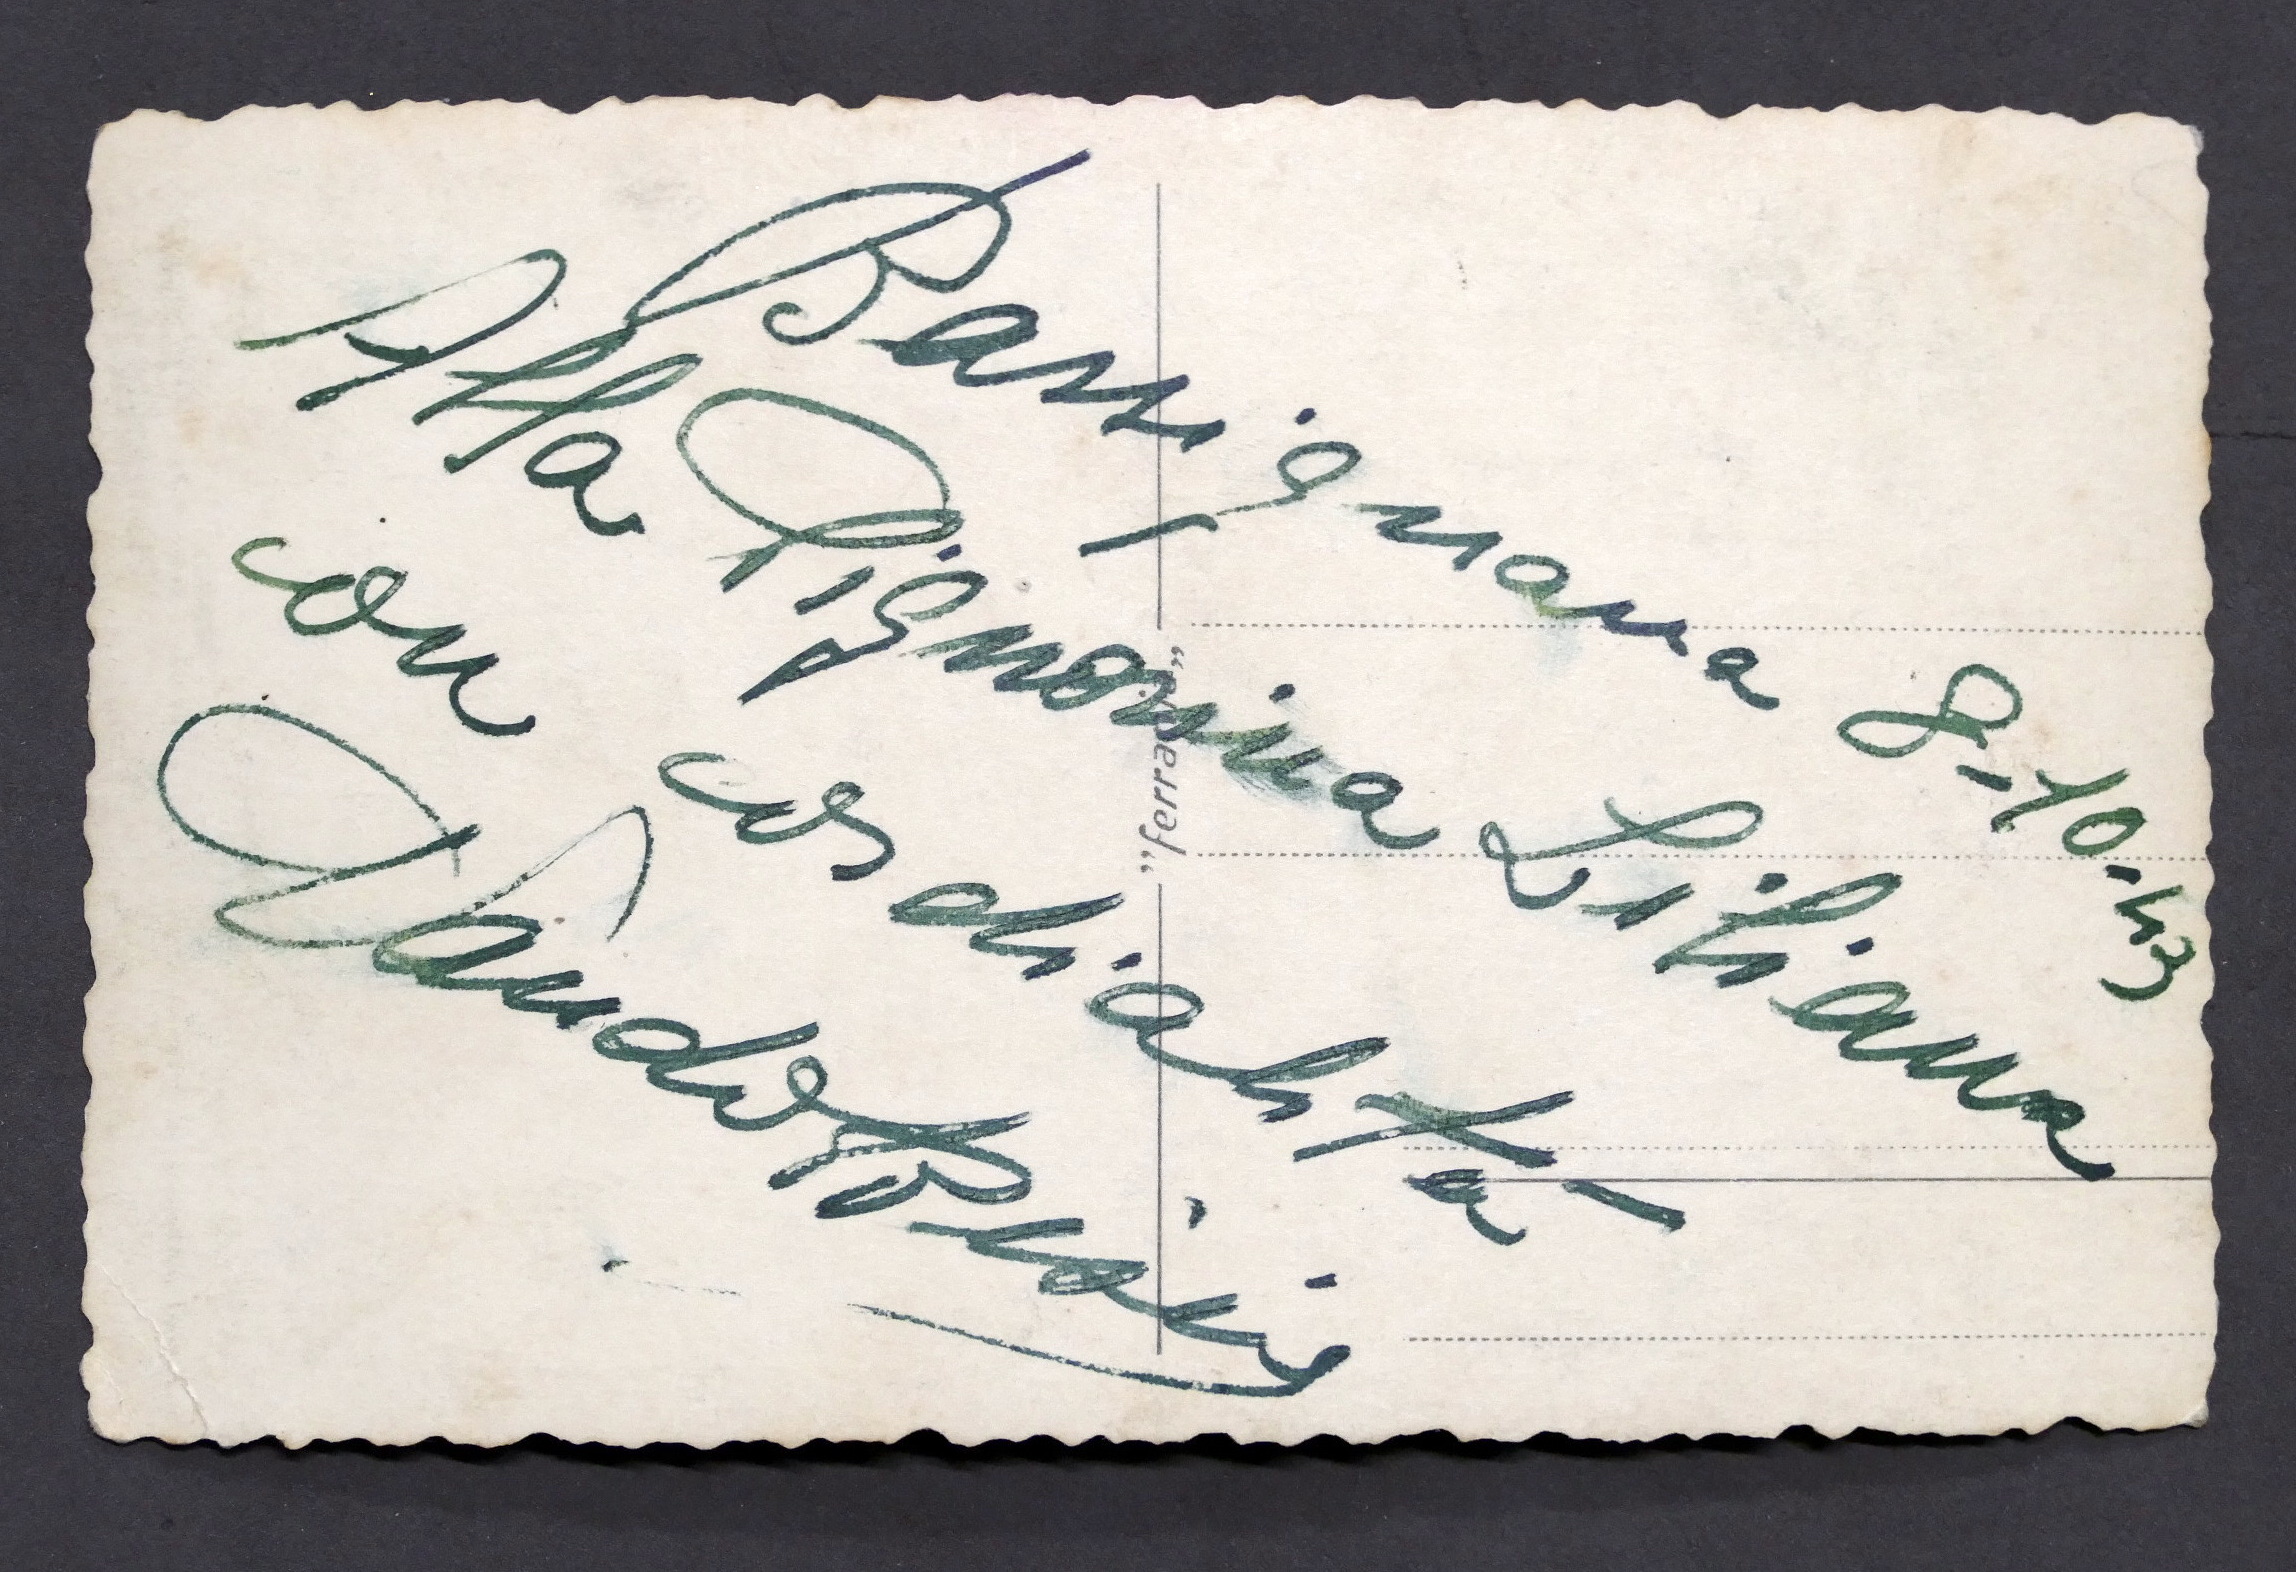 Bassignana 8-10-43
Alla Signorina Liliana
con cordialità
Sandro
"ferrania"